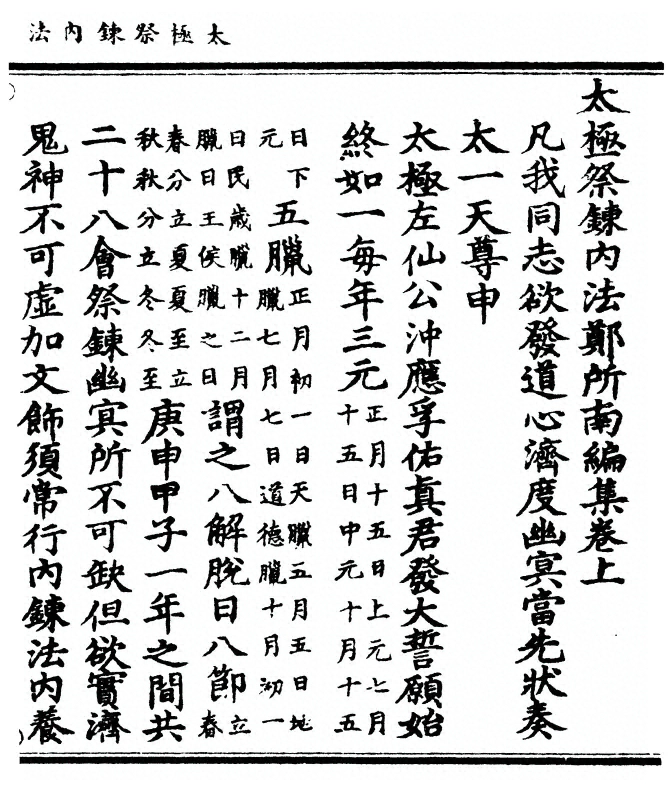 太極祭鍊內法
太極祭鍊內法鄭所南編集卷上
凡我同志欲發道心濟度幽冥當先狀奏
太一天尊申
太極左仙公沖應孚佑真君發大誓願始
終如一每年三元正月十五日上元七月十五日中元十月十五
日下元五臘正月初一日天臘五月五日地臘七月七日道德臘十月初一
日民歲臘十二月臘日王侯臘之日謂之八解脫日八節立春
春分立夏夏至立秋秋分立冬冬至庚申甲子一年之間共
二十八會祭鍊幽冥所不可缺但欲實濟
鬼神不可虛加文飾須常行內鍊法內養